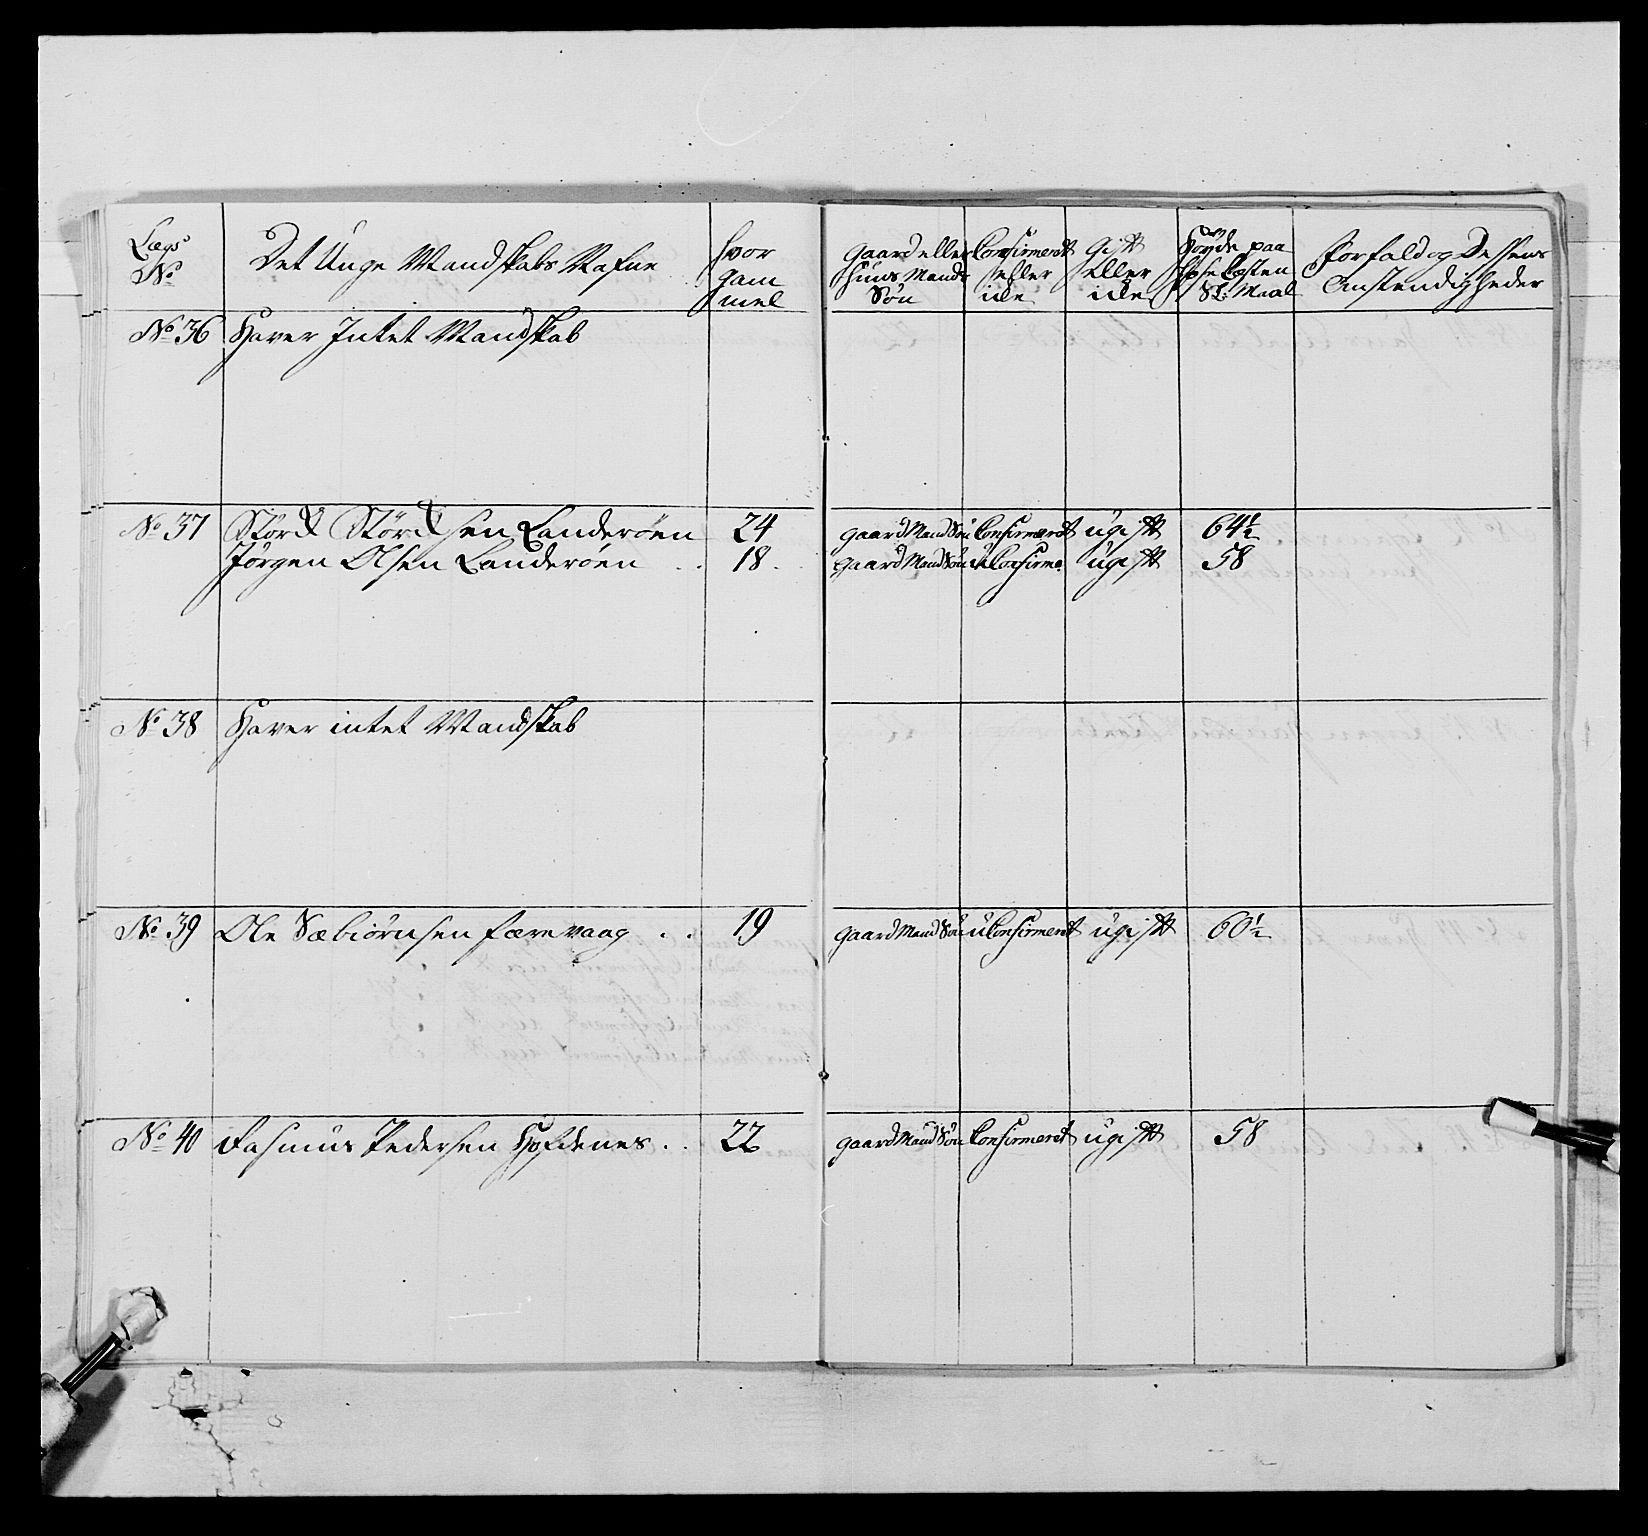 Lægs No | Det Unge Mandskabs Nafne | hvor gam mel | Gaard eller Huus Mands Søn | Confirmeret eller icke | Gift eller icke | Høyde paa Hose Læsten Sl: Maal | Forfald og Dessens Omstendigheder
No 36 Haver Intet Mandskab
No 37 Størck Størcksen Landerøen 24 gaard Mand Søn Confirmeret ugift 64½
Jørgen Olsen Landerøen . . 18. gaard Mand Søn uConfirme. ugift 58
No 38 Haver intet Mandskab
No 39 Ole Sæbiørnsen færevaag . . 19 gaard Mand Søn uConfirmeret ugift 60½
No 40 Rasmus Pedersen Hofdenes . . 22 gaard Mand Søn Confirmeret ugift 58